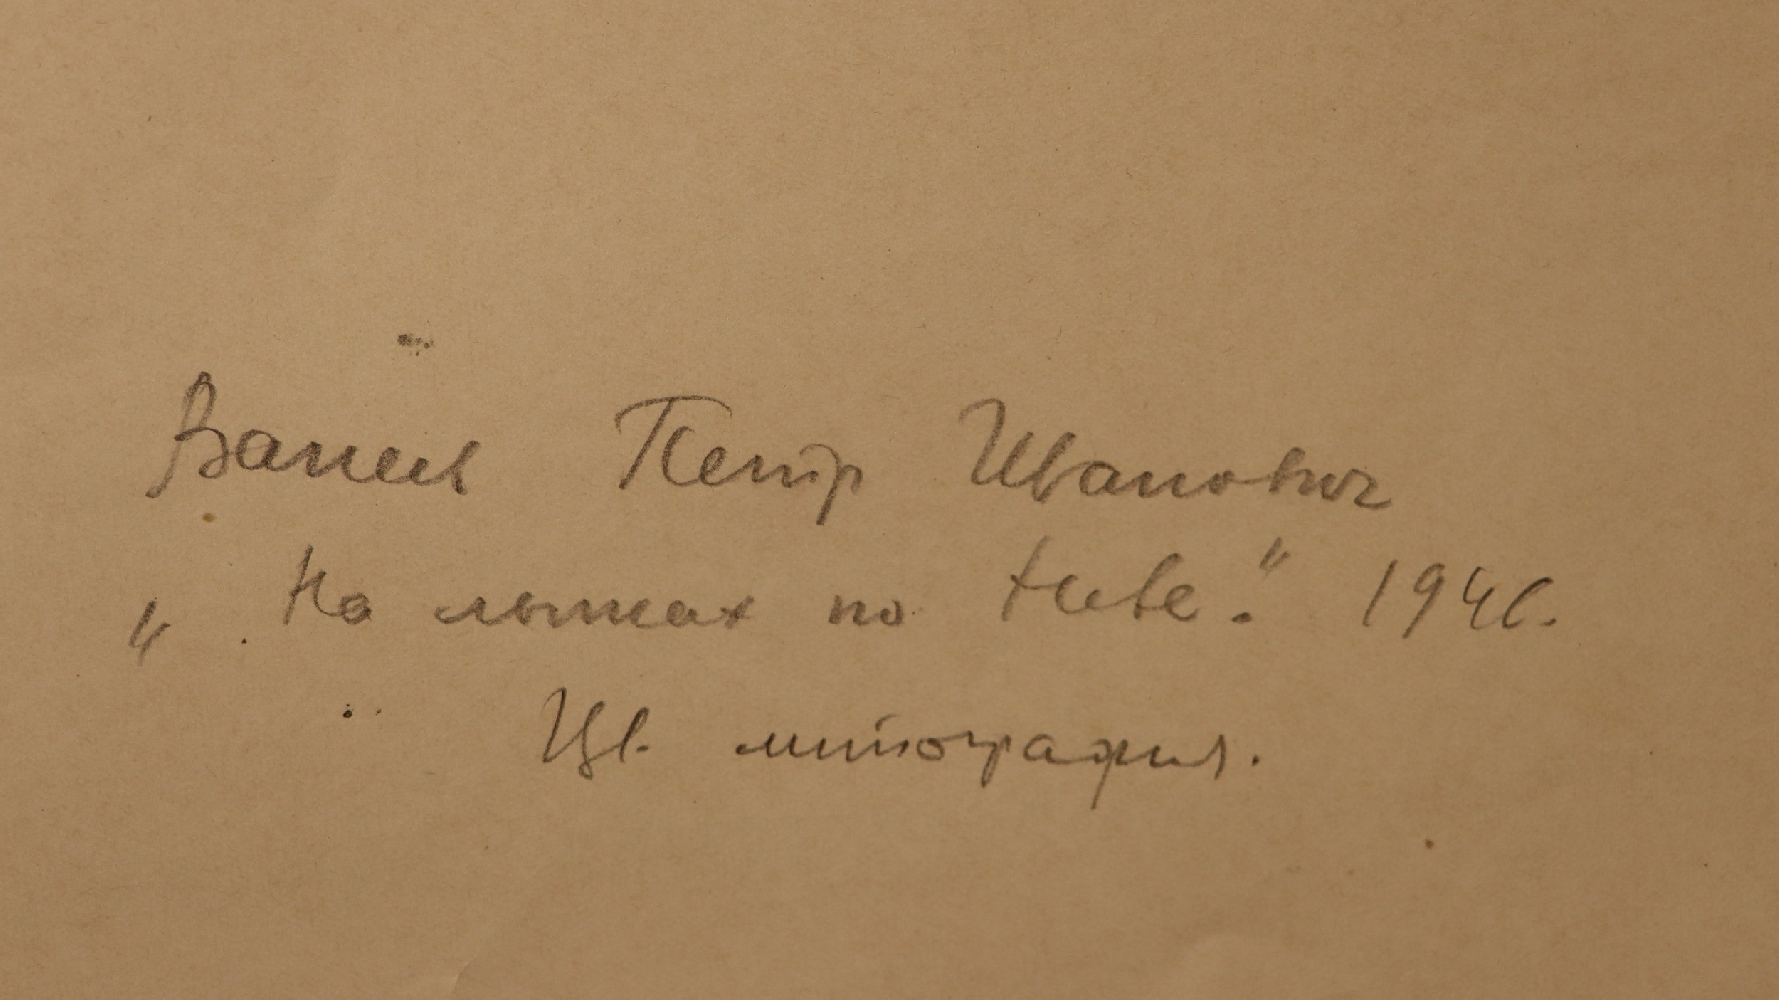 Ванеев Петр Иванович
„На лыжах по Неве." 1946.
Цв. литография.